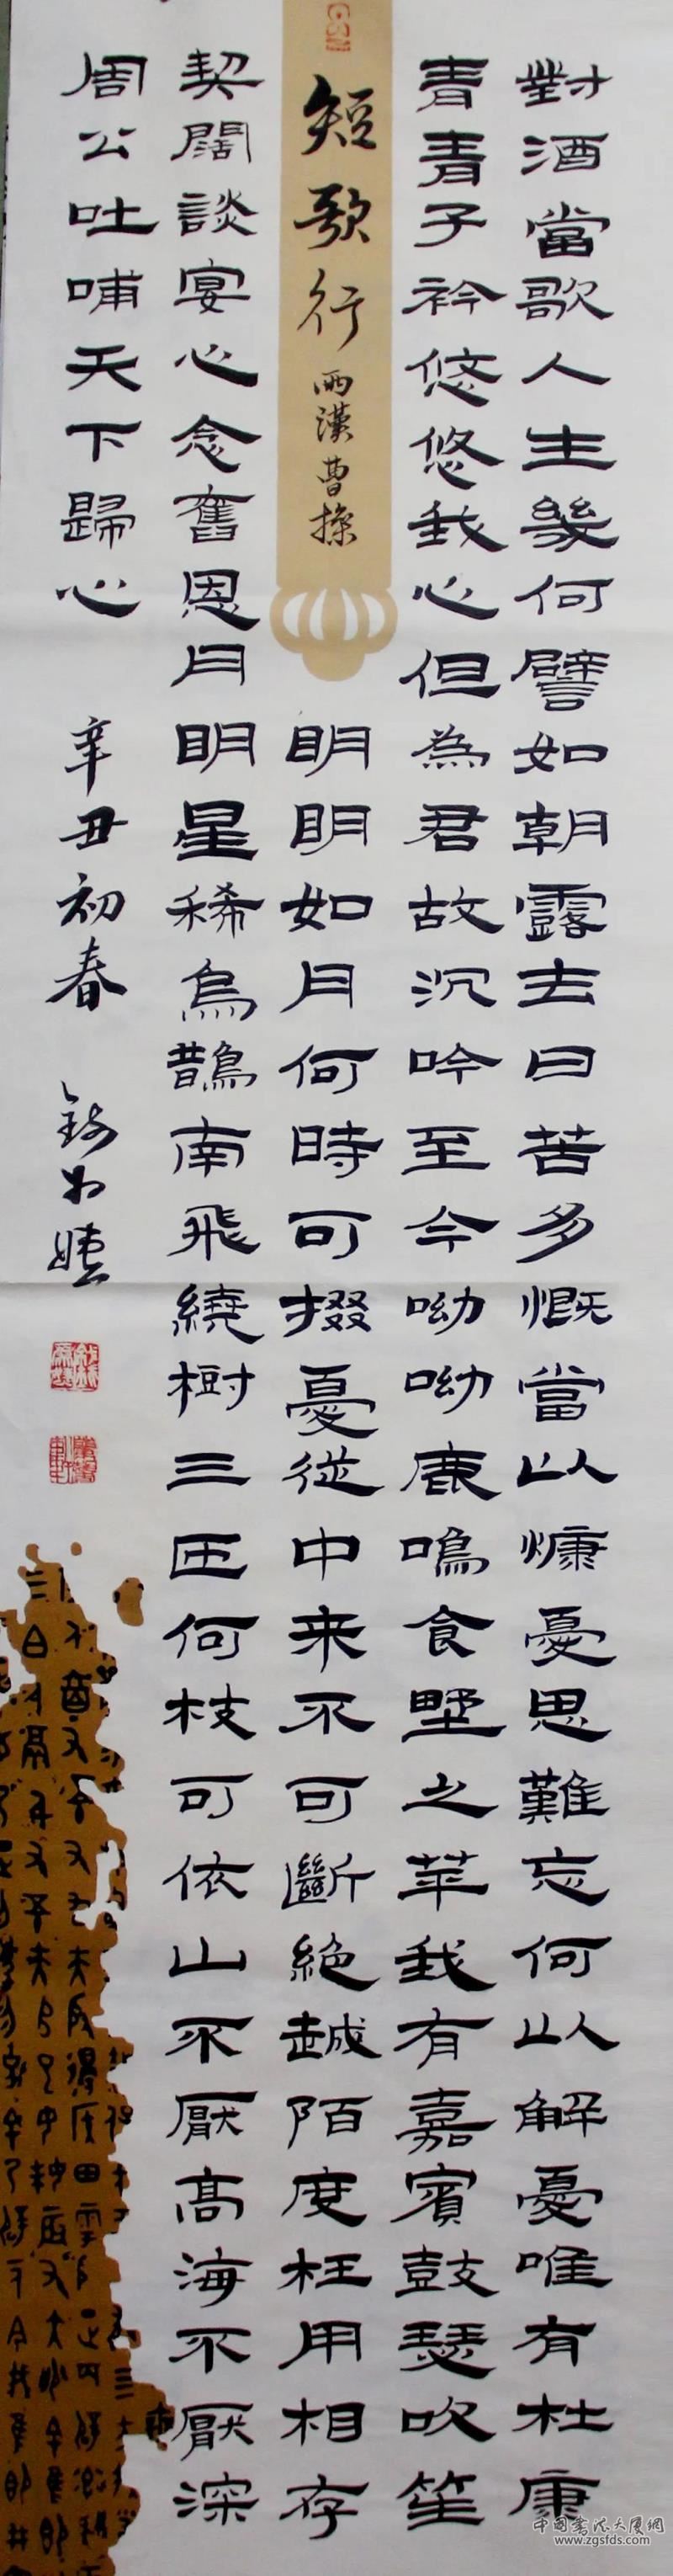 對酒當歌人生幾何譬如朝露去日苦多慨當以慷憂思難忘何以解憂唯有杜康
青青子衿悠悠我心但為君故沉吟至今呦呦鹿鳴食野之苹我有嘉賓鼓瑟吹笙
短歌行
兩漢曹操
明明如月何時可掇憂從中来不可斷絕越陌度枉用相存
契闊談宴心念舊恩月明星稀烏鵲南飛繞樹三匝何枝可依山不厭高海不厭深
周公吐哺天下歸心
辛丑初春
中国书法大厦网
www.zgsfds.com